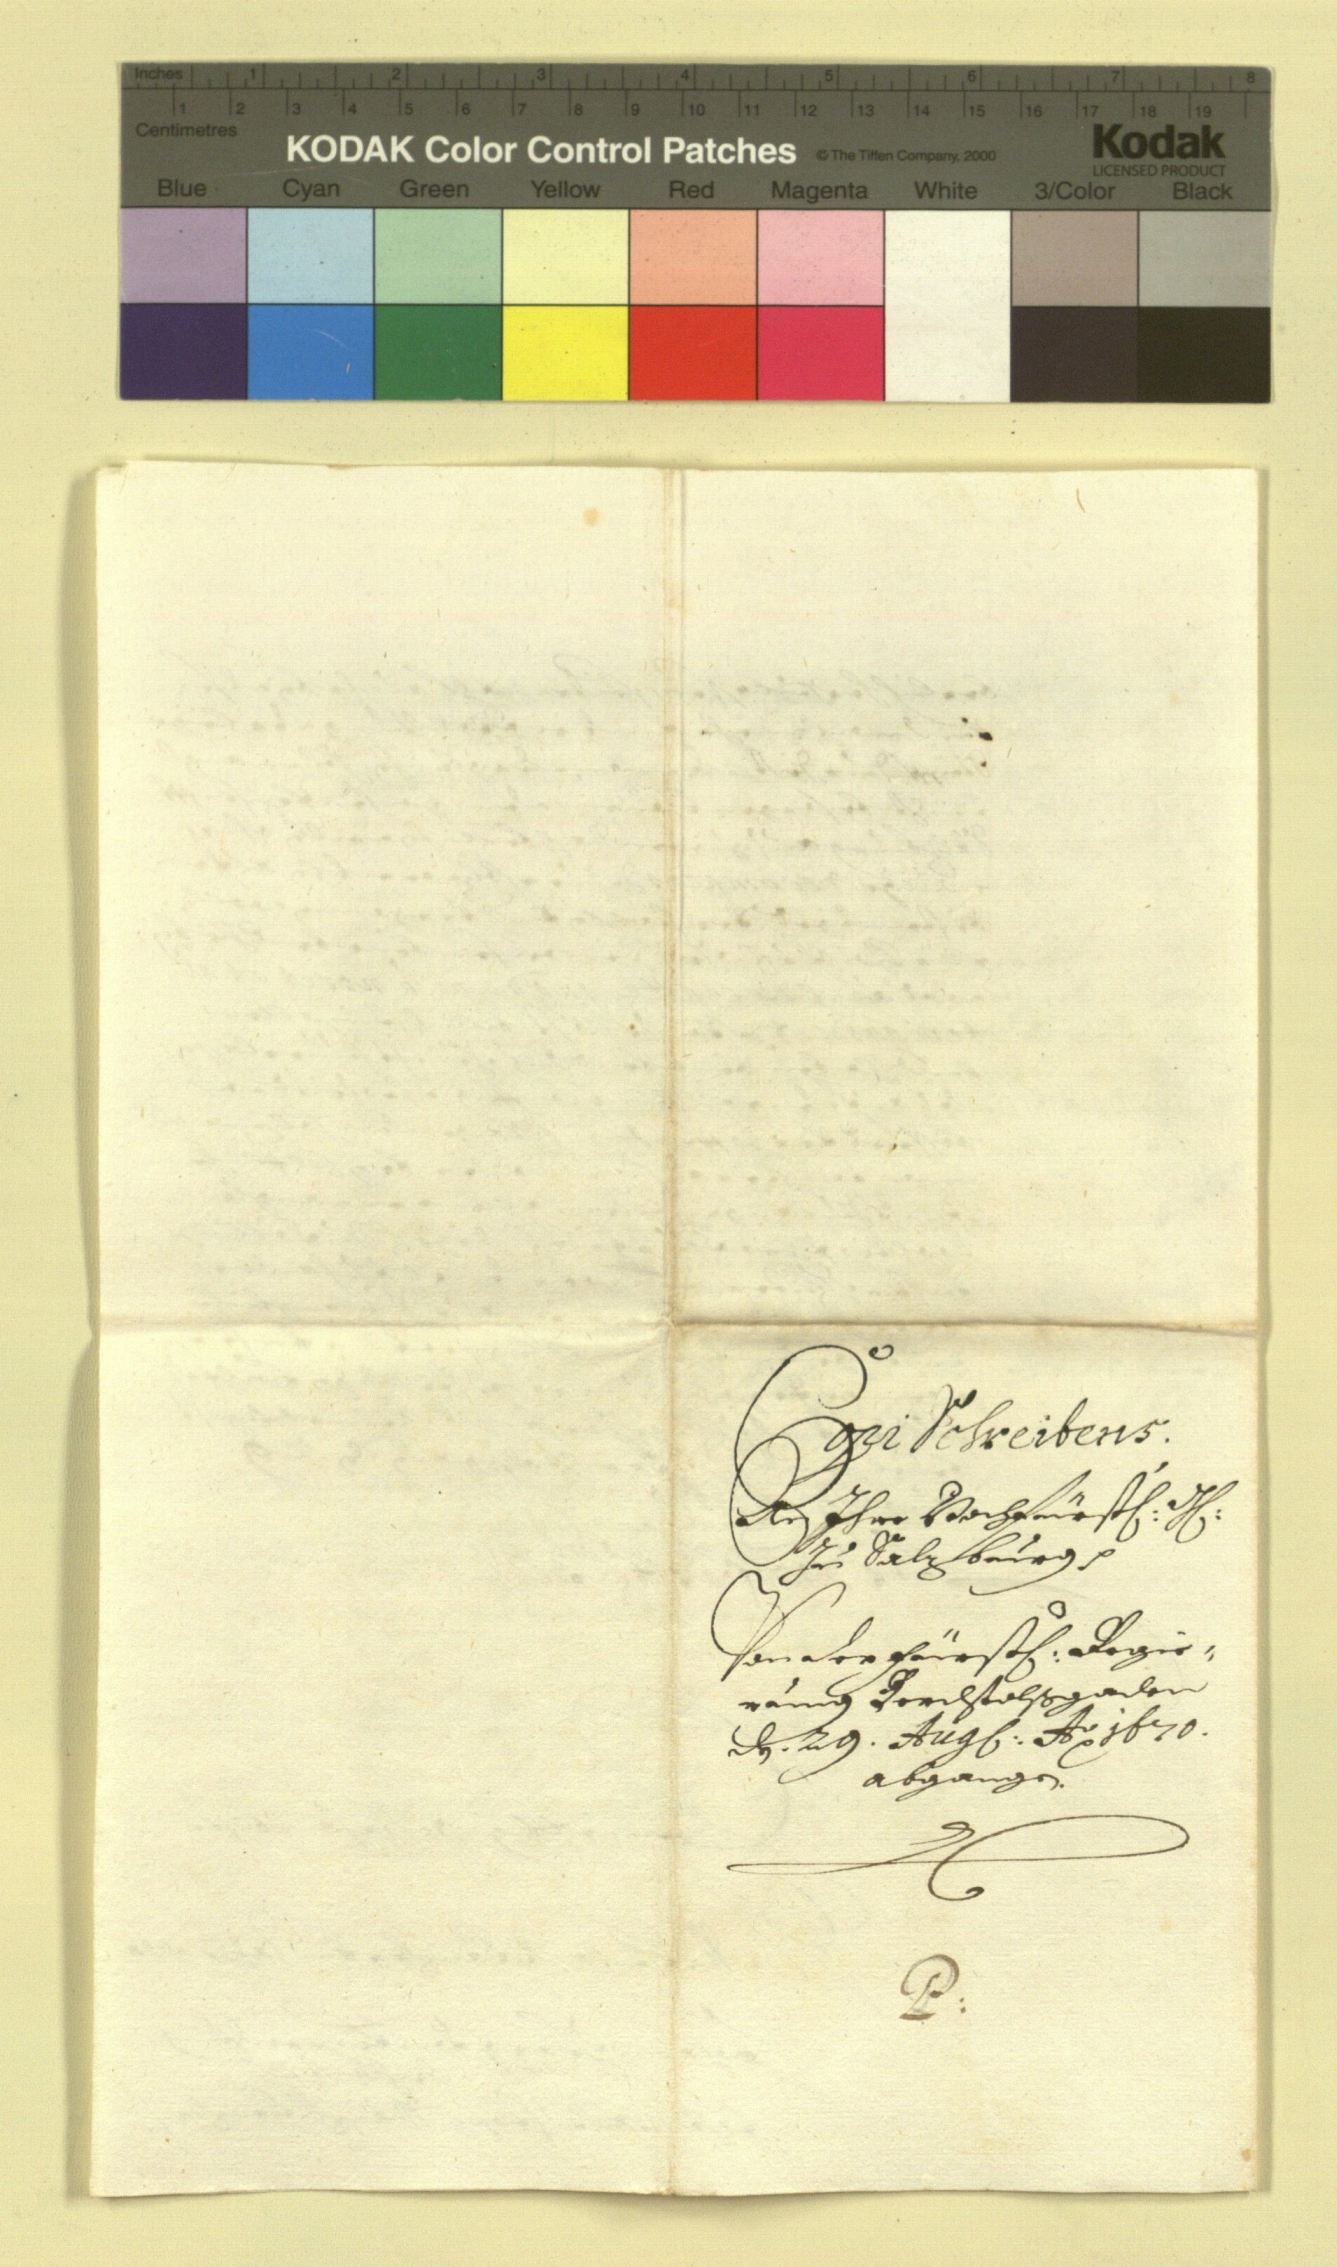 Inches 1 2 3 4 5 6 7 8
1 2 3 4 5 6 7 8 9 10 11 12 13 14 15 16 17 18 19
Centimetres
KODAK Color Control Patches © The Tiffen Company, 2000 Kodak
LICENSED PRODUCT
Blue Cyan Green Yellow Red Magenta White 3/Color Black
Copi Schreibens.
An Ihro Hochfürstl: 
Zu Salzburg
Von der fürstl: Regie-
rung Berchtolsgaden
dn. 29. Aug: Ao 1670.
abgangen.
P: